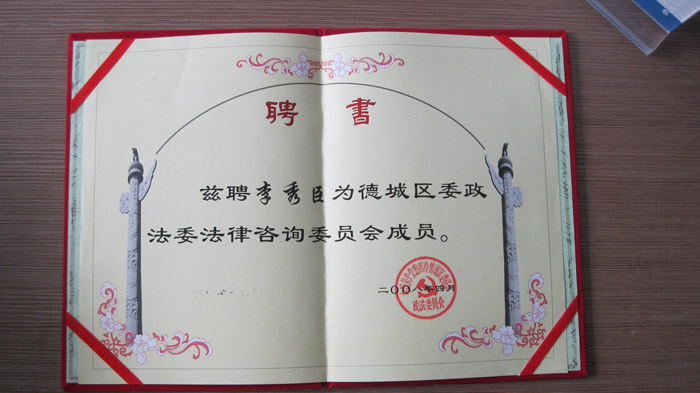 聘書
兹聘李秀臣为德城区委政
法委法律咨询委员会成员。
二〇〇八年四月
政法委员会